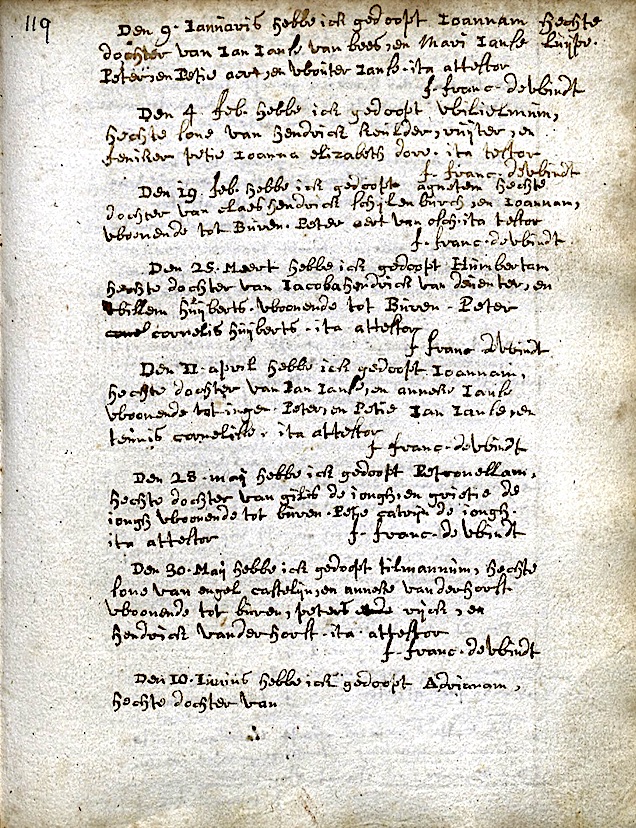 119
Den 9. Iannuaris hebbe ick gedoopt Ioannam hechte
dochter van Ian Ianse van bees, en Mari Ianse
Peter, en Petie aert, en wouter Ianse. ita attestor
f. franc. de wbindt
Den 4 feb. hebbe ick gedoopt wbilielmum,
hechte sone van hendrick, en
Ioanna elizabeth dore. ita testor
f. franc. de wbindt
Den 19. feb. hebbe ick gedoopt agnetem hechte
dochter van claes hendrick schilenburch, en Ioannam,
wboonende tot Buren. Peter aert van osch. ita testor
f. franc. de wbindt.
Den 25. Meert hebbe ick gedoopt Humbertam
hechte dochter van Iacoba hendrick van deuenter, en
wbillem huijberts. wboonende tot Buren. Peter
cornelis huijberts. ita attestor
f franc. d wbindt
Den 11. april hebbe ick gedoopt Ioannam,
hechte dochter van Ian Ianse, en anneke Ianse
wboonende tot ingen. Peter, en Petie Ian Ianse, en
tennis cornelisse. ita attestor
f franc. de wbindt
Den 28. maij hebbe ick gedoopt Petronellam,
hechte dochter van gilis de iongh, en grietie de
iongh wboonende tot buren. Petie catrijn de iongh.
ita attestor f. franc. de wbindt
Den 30. Maij hebbe ick gedoopt tilmannum, hechte
sone van engel castelijn, en anneke vanderhorst
wboonende tot buren, rijck, en
hendrick vanderhorst. ita attestor
f. franc. de wbindt
Den 10. Iunius hebbe ick gedoopt Adrianam,
hechte dochter van